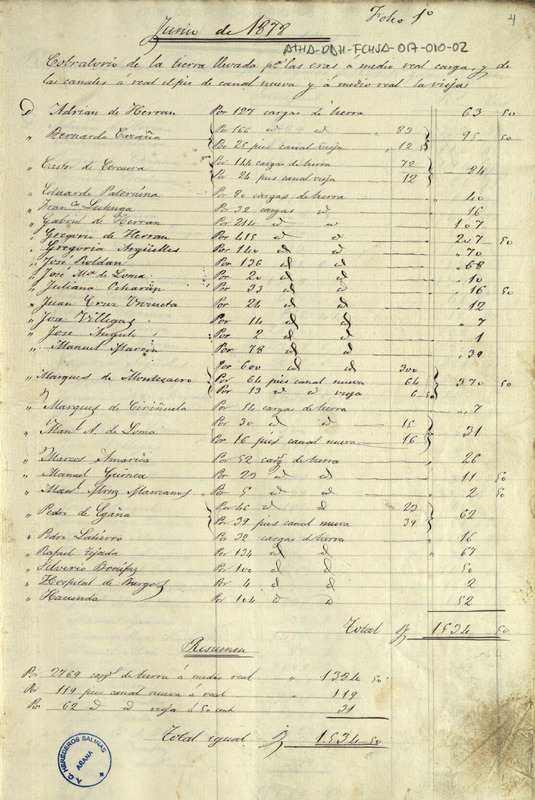 Folio 1º
4
Junio de 1878
ATHA-DAH-FCHSA-017-010-02
Cobratorio de la tierra llevada pª las eras a medio real carga, y de
las canales á real el pie de canal nueva y á medio real la vieja
D Adrian de Herran Por 127 cargas de tierra 63 50
" Bernardo Por 166 id id 83
Por 25 pies canal vieja 12 50 95 50
" Castor de Cercuera Por 144 cargas de tierra 72
Por 24 pies canal vieja 12 84
" Eduardo Paternina Por 80 cargas de tierra 40
" Franco Lechuga Por 32 cargas id 16
" Gabriel de Herran Por 214 id id 107
" Gregorio de Herran Por 415 id id 207 50
" Gregoria Argüelles Por 140 id id 70
" José Roldan Por 136 id id 68
" José Mª de Loma Por 20 id id 10
" Juliana Por 33 id id 16 50
" Juan Cruz Por 24 id id 12
" José Villegas Por 14 id id 7
" José Angulo Por 2 id id 1
" Manuel Por 78 id id 39
" Marques de Montesacro Por 600 id id 300
Por 64 pies canal nueva 64
Por 13 id id vieja 6 50 370 50
" Marques de Ciriñuela Por 14 cargas de tierra 7
" Manl A. de Loma Por 30 id id 15
Por 16 pies canal nueva 16 31
" Marcos Por 52 cargs de tierra 26
" Manuel Guinea Por 23 id id 11 50
" Manl Manzanos Por 5 id id 2 50
" Pedro de Egaña Por 46 id id 23
Por 39 pies canal nueva 39 62
" Pedro Latierro Por 32 cargas de tierra 16
" Rafael Tejada Por 134 id id 67
" Silverio Bonifaz Por 100 id id 50
" Hospital de Burgos Por 4 id id 2
" Hacienda Por 104 id id 52
Total 1.534 50
Resumen
Por 2769 cargs de tierra á medio real " 1384 50
Por 119 pies canal nueva á real " 119
Por 62 id id vieja á 50 cent 31
Total igual 1.534 50
A.G. HEREDEROS SALINAS
ARANA